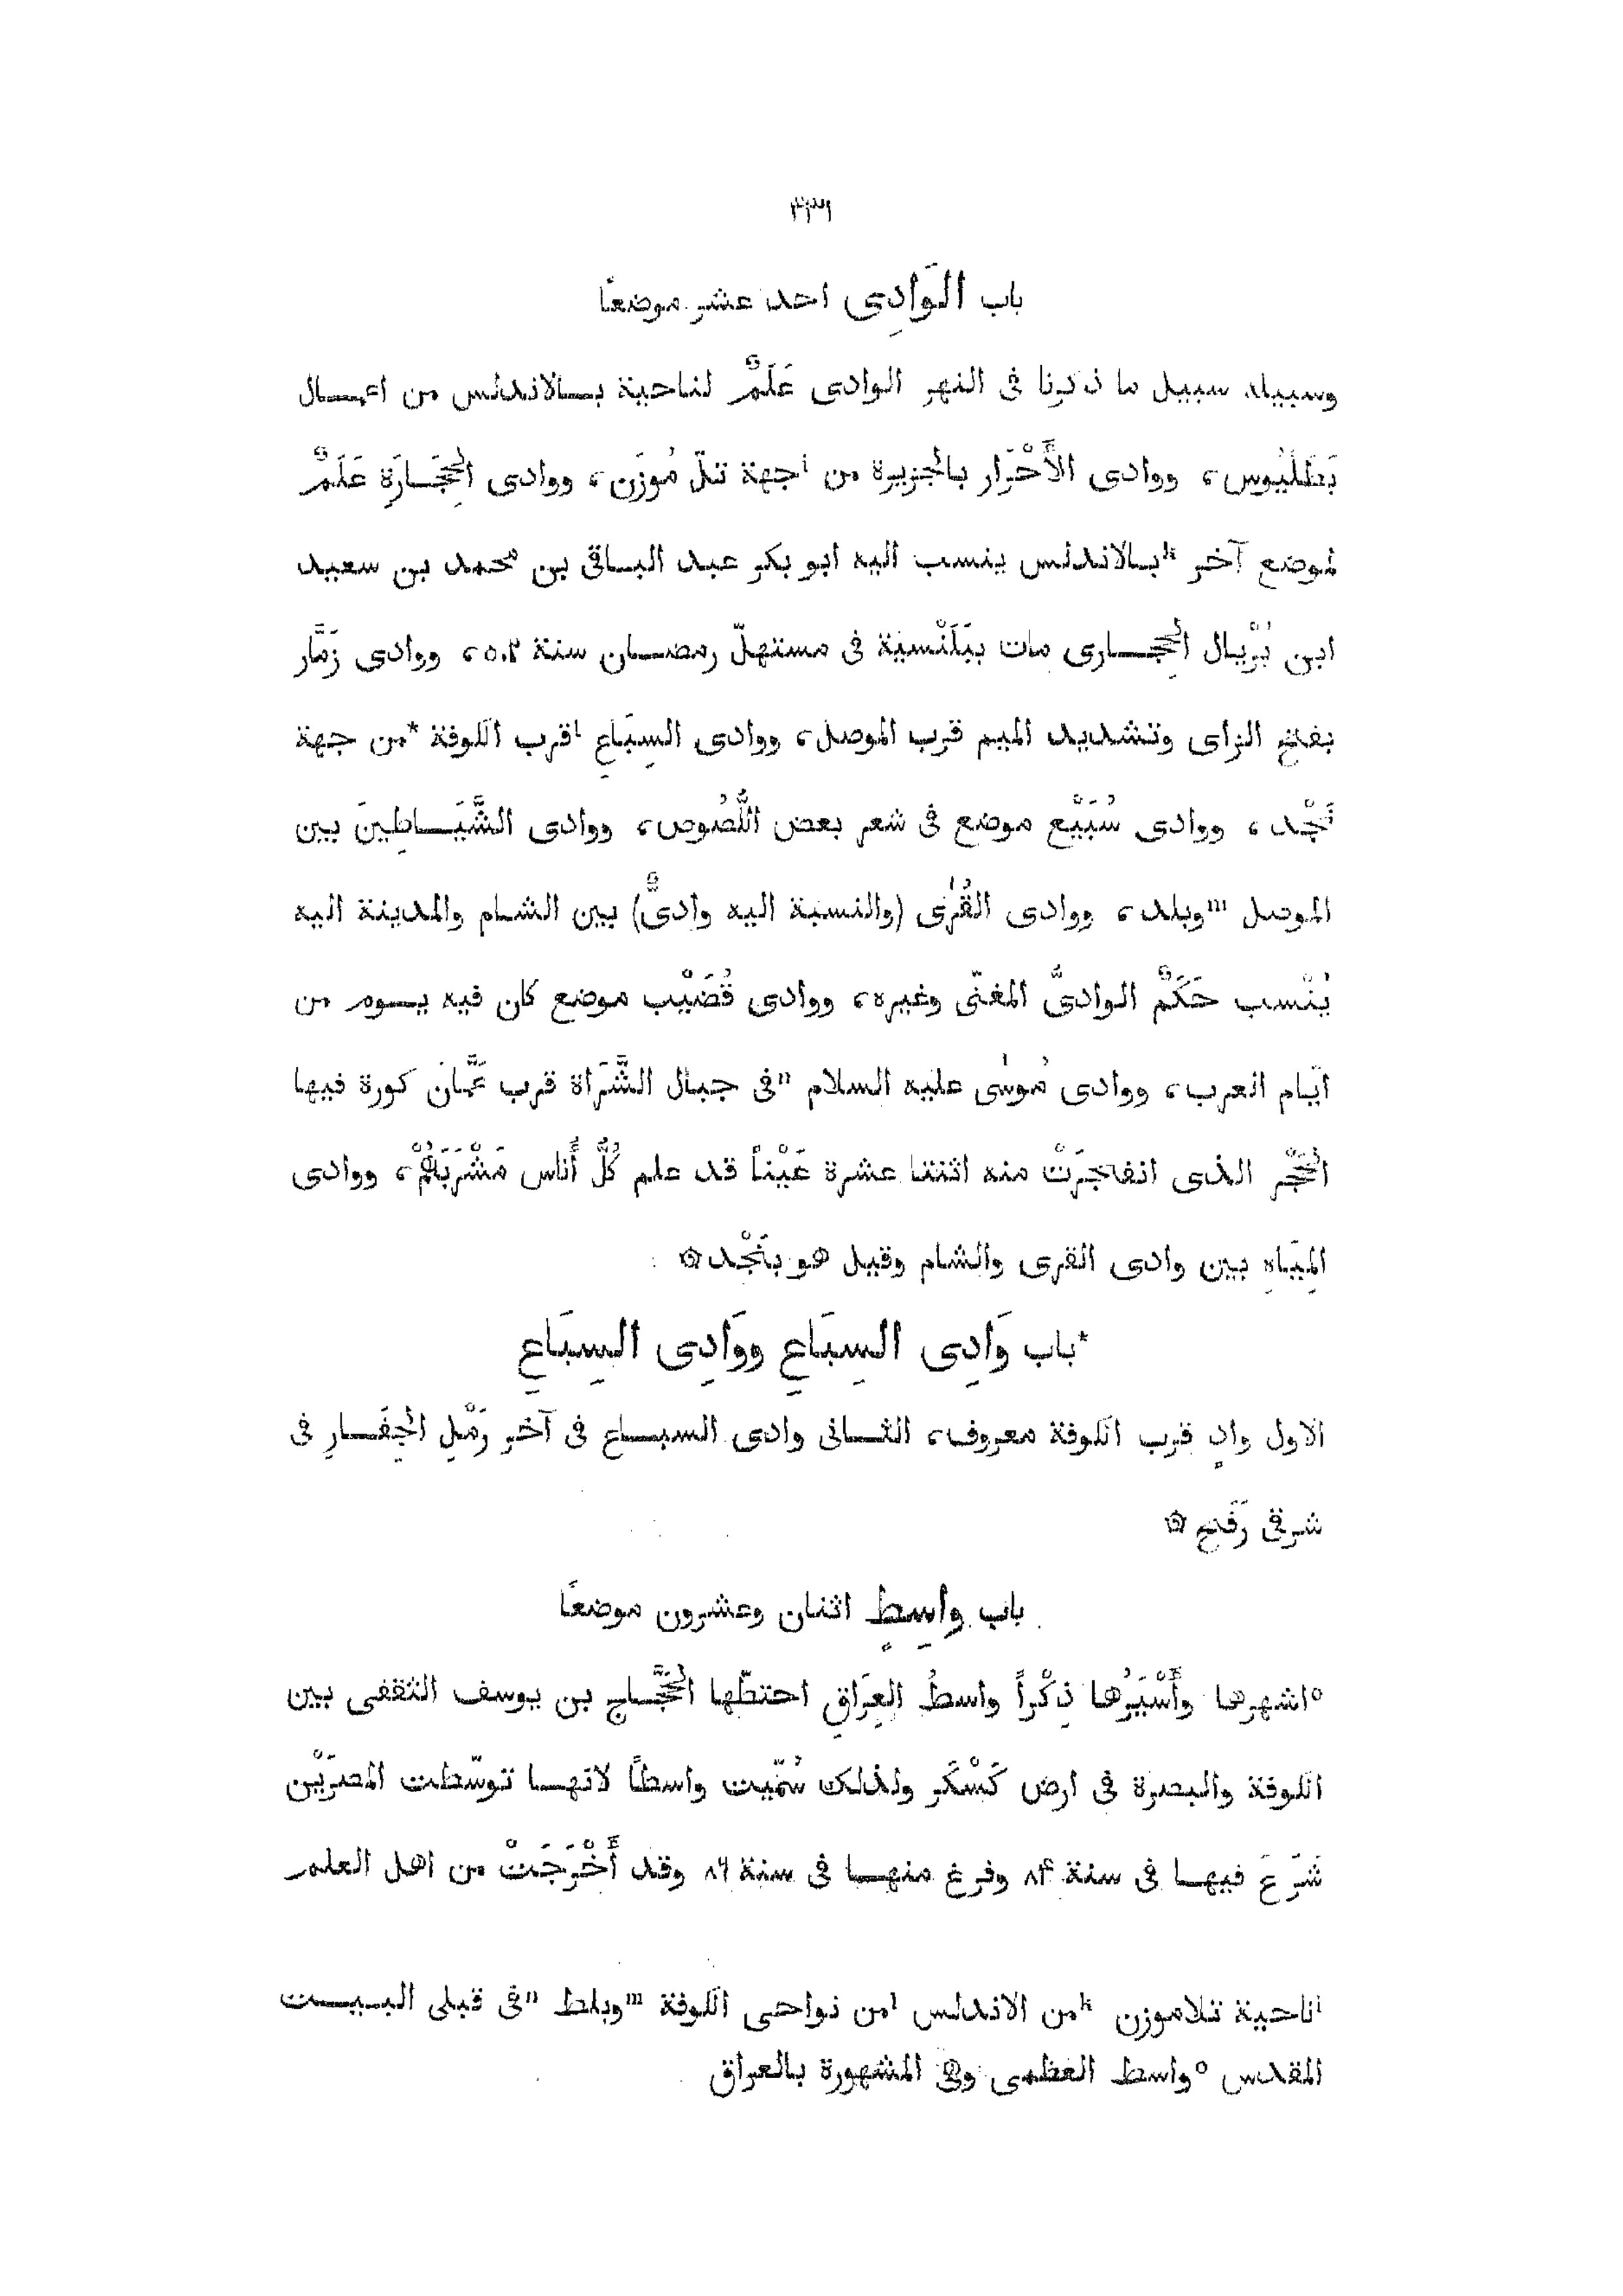 ٤٣١
باب الوَادِى احد عشر موضعًا
وسبيله سبيل ما ذكرنا فى النهر الوادى عَلَمٌ لناحية بالاندلس من اعمال
بَطَلْيُوس، ووادى الأَحْرَار بالجزيرة من ᶦجهة تلّ مُوزَن، ووادى الحِجَارَةِ عَلَمٌ
لموضع آخر ᵏبالاندلس ينسب اليه ابو بكر عبد الباقى بن محمد بن سعيد
ابن بُرْيال الحِجارى مات ببَلَنْسية فى مستهلّ رمضان سنة ٥٠٢، ووادى زَمَّار
بفتح الزاى وتشديد الميم قرب الموصل، ووادى السِبَاعِ ˡقرب الكوفة *من جهة
نَجْد، ووادى سُبَيْع موضع فى شعر بعض اللُّصُوص، ووادى الشَّيَاطِينَ بين
الموصل ᵐوبلد، ووادى القُرٰى (والنسبة اليه وادىٌّ) بين الشام والمدينة اليه
يُنْسب حَكَمٌ الوادىُّ المغنّى وغيره، ووادى قُضَيْب موضع كان فيه يوم من
ايّام العرب، ووادى مُوسٰى عليه السلام ⁿفى جبال الشَّرَاة قرب عَمَّانَ كورة فيها
الحَجَر الذى انفاجرَتْ منه اثنتا عشرة عَيْناً قد علم كُلُّ أُناس مَشْرَبَهُمْ، ووادى
المِيَاهِ بين وادى القرى والشام وقيل هو بنَجْد ۞
*باب وَادِى السِبَاعِ ووَادِى السِبَاعِ
الاول وادٍ قرب الكوفة معروف، الثانى وادى السباع فى آخر رَمْلِ الجِفَارِ فى
شرقى رَفَح ۞
باب وِاسِطٍ اثنان وعشرون موضعًا
ᵒاشهرها وأَسْيَرُها ذِكْراً واسطُ العِرَاقِ احتطّها الحَجَّاج بن يوسف الثقفى بين
الكوفة والبصرة فى ارض كَسْكَر ولذلك سُمّيت واسطاً لانها توسّطت المصرَيْن
شَرَعَ فيها فى سنة ٨٤ وفرغ منها فى سنة ٨٦ وقد أَخْرَجَتْ من اهل العلم
ᶦناحية تلاموزن ᵏمن الاندلس ˡمن نواحى الكوفة ᵐوبلط ⁿفى قبلى البيت
المقدس ᵒواسط العظمى وهى المشهورة بالعراق